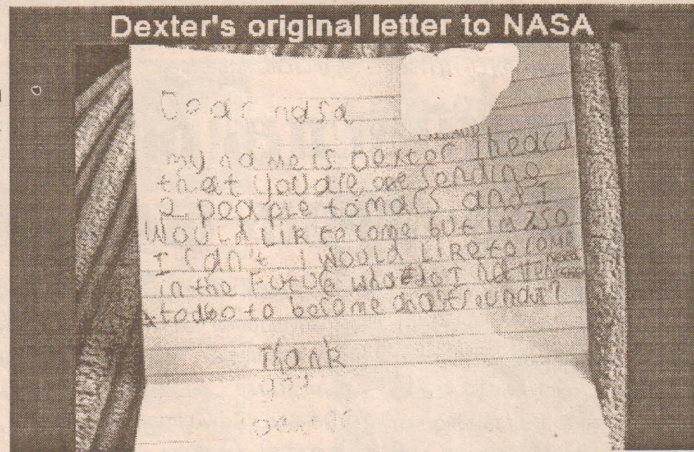 Dexter's original letter to NASA
Dear nasa
my name is Dexter I heard
that you are are sending
2 peaple to mars and I
WOULD LIK to come but im 7 SO
I can't I WOULD LIKE to come
in the FUtUG what do I need
to do to become an astrounaut?
Thank
you
Dex